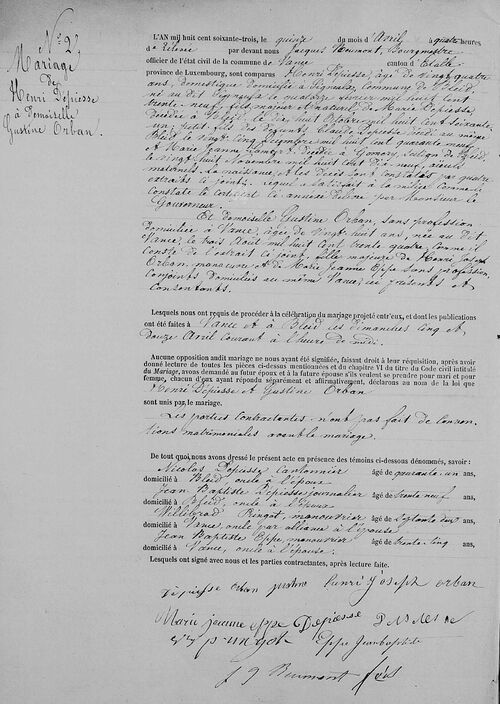 N° 2
Mariage
de
Henri Depiesse
à Demoiselle
Gustine Orban.
L'AN mil huit cent soixante-trois, le quinze du mois d'Avril à quatre heures
de relevée par devant nous Jacques Beaumont, Bourgmestre
officier de l'état civil de la commune de Vance canton d'Etalle
province de Luxembourg, sont comparus Henri Depiesse, âgé de vingt quatre
ans, domestique domicilié à Signeulx, commune de Bleid,
né au dit Signeulx le mil huit cent
trente-neuf, fils majeur et naturel de Marie Depiesse,
décédée à Bleid, le dix huit Octobre mil huit cent soixante
un, petit fils des défunts, Claude Depiesse décédé au même
Bleid le vingt cinq mil huit cent quarante neuf
et Marie Jeanne décédée à section de Bleid,
le vingt huit Novembre mil huit cent dix neuf, aïeuls
maternels. La naissance et les décès sont constatés par quatre
extraits ci joints. Lequel a satisfait à la milice comme le
constate le certificat ci annexé délivré par Monsieur le
Gouverneur.
Et demoiselle Gustine Orban, sans profession
domiciliée à Vance, âgée de vingt huit ans, née au dit
Vance, le trois Août mil huit cent trente quatre, comme il
conste de l'extrait ci joint, fille majeure de Henri Joseph
Orban, manœuvre et de Marie Jeanne Eppe sans profession,
conjoints domiciliés au même Vance, ici présents et
consentants.
Lesquels nous ont requis de procéder à la célébration du mariage projeté entr'eux, et dont les publications
ont été faites à Vance et à Bleid les dimanches cinq et
douze Avril courant à l'heure de midi.
Aucune opposition audit mariage ne nous ayant été signifiée, faisant droit à leur réquisition, après avoir
donné lecture de toutes les pièces ci-dessus mentionnées et du chapitre VI du titre du Code civil intitulé
du Mariage, avons demandé au futur époux et à la future épouse s'ils veulent se prendre pour mari et pour
femme, chacun d'eux ayant répondu séparément et affirmativement, déclarons au nom de la loi que
Henri Depiesse et Gustine Orban
sont unis par le mariage.
Les parties contractantes n'ont pas fait de conven-
tions matrimoniales avant le mariage.
De tout quoi, nous avons dressé le présent acte en présence des témoins ci-dessous dénommés, savoir :
Nicolas Depiesse cantonnier âgé de quarante un ans,
domicilié à Bleid, oncle à l'époux
Jean Baptiste Depiesse journalier âgé de trente neuf ans,
domicilié à Bleid, oncle à l'époux
Willibrod manouvrier âgé de septante deux ans,
domicilié à Vance, oncle par alliance à l'épouse
Jean Baptiste Eppe, manouvrier âgé de trente-cinq ans,
domicilié à Vance, oncle à l'épouse.
Lesquels ont signé avec nous et les parties contractantes, après lecture faite.
Depiesse orban justine henri joseph orban
Marie jeanne eppe Depiesse
Eppe Jeanbaptiste
J J Beaumont